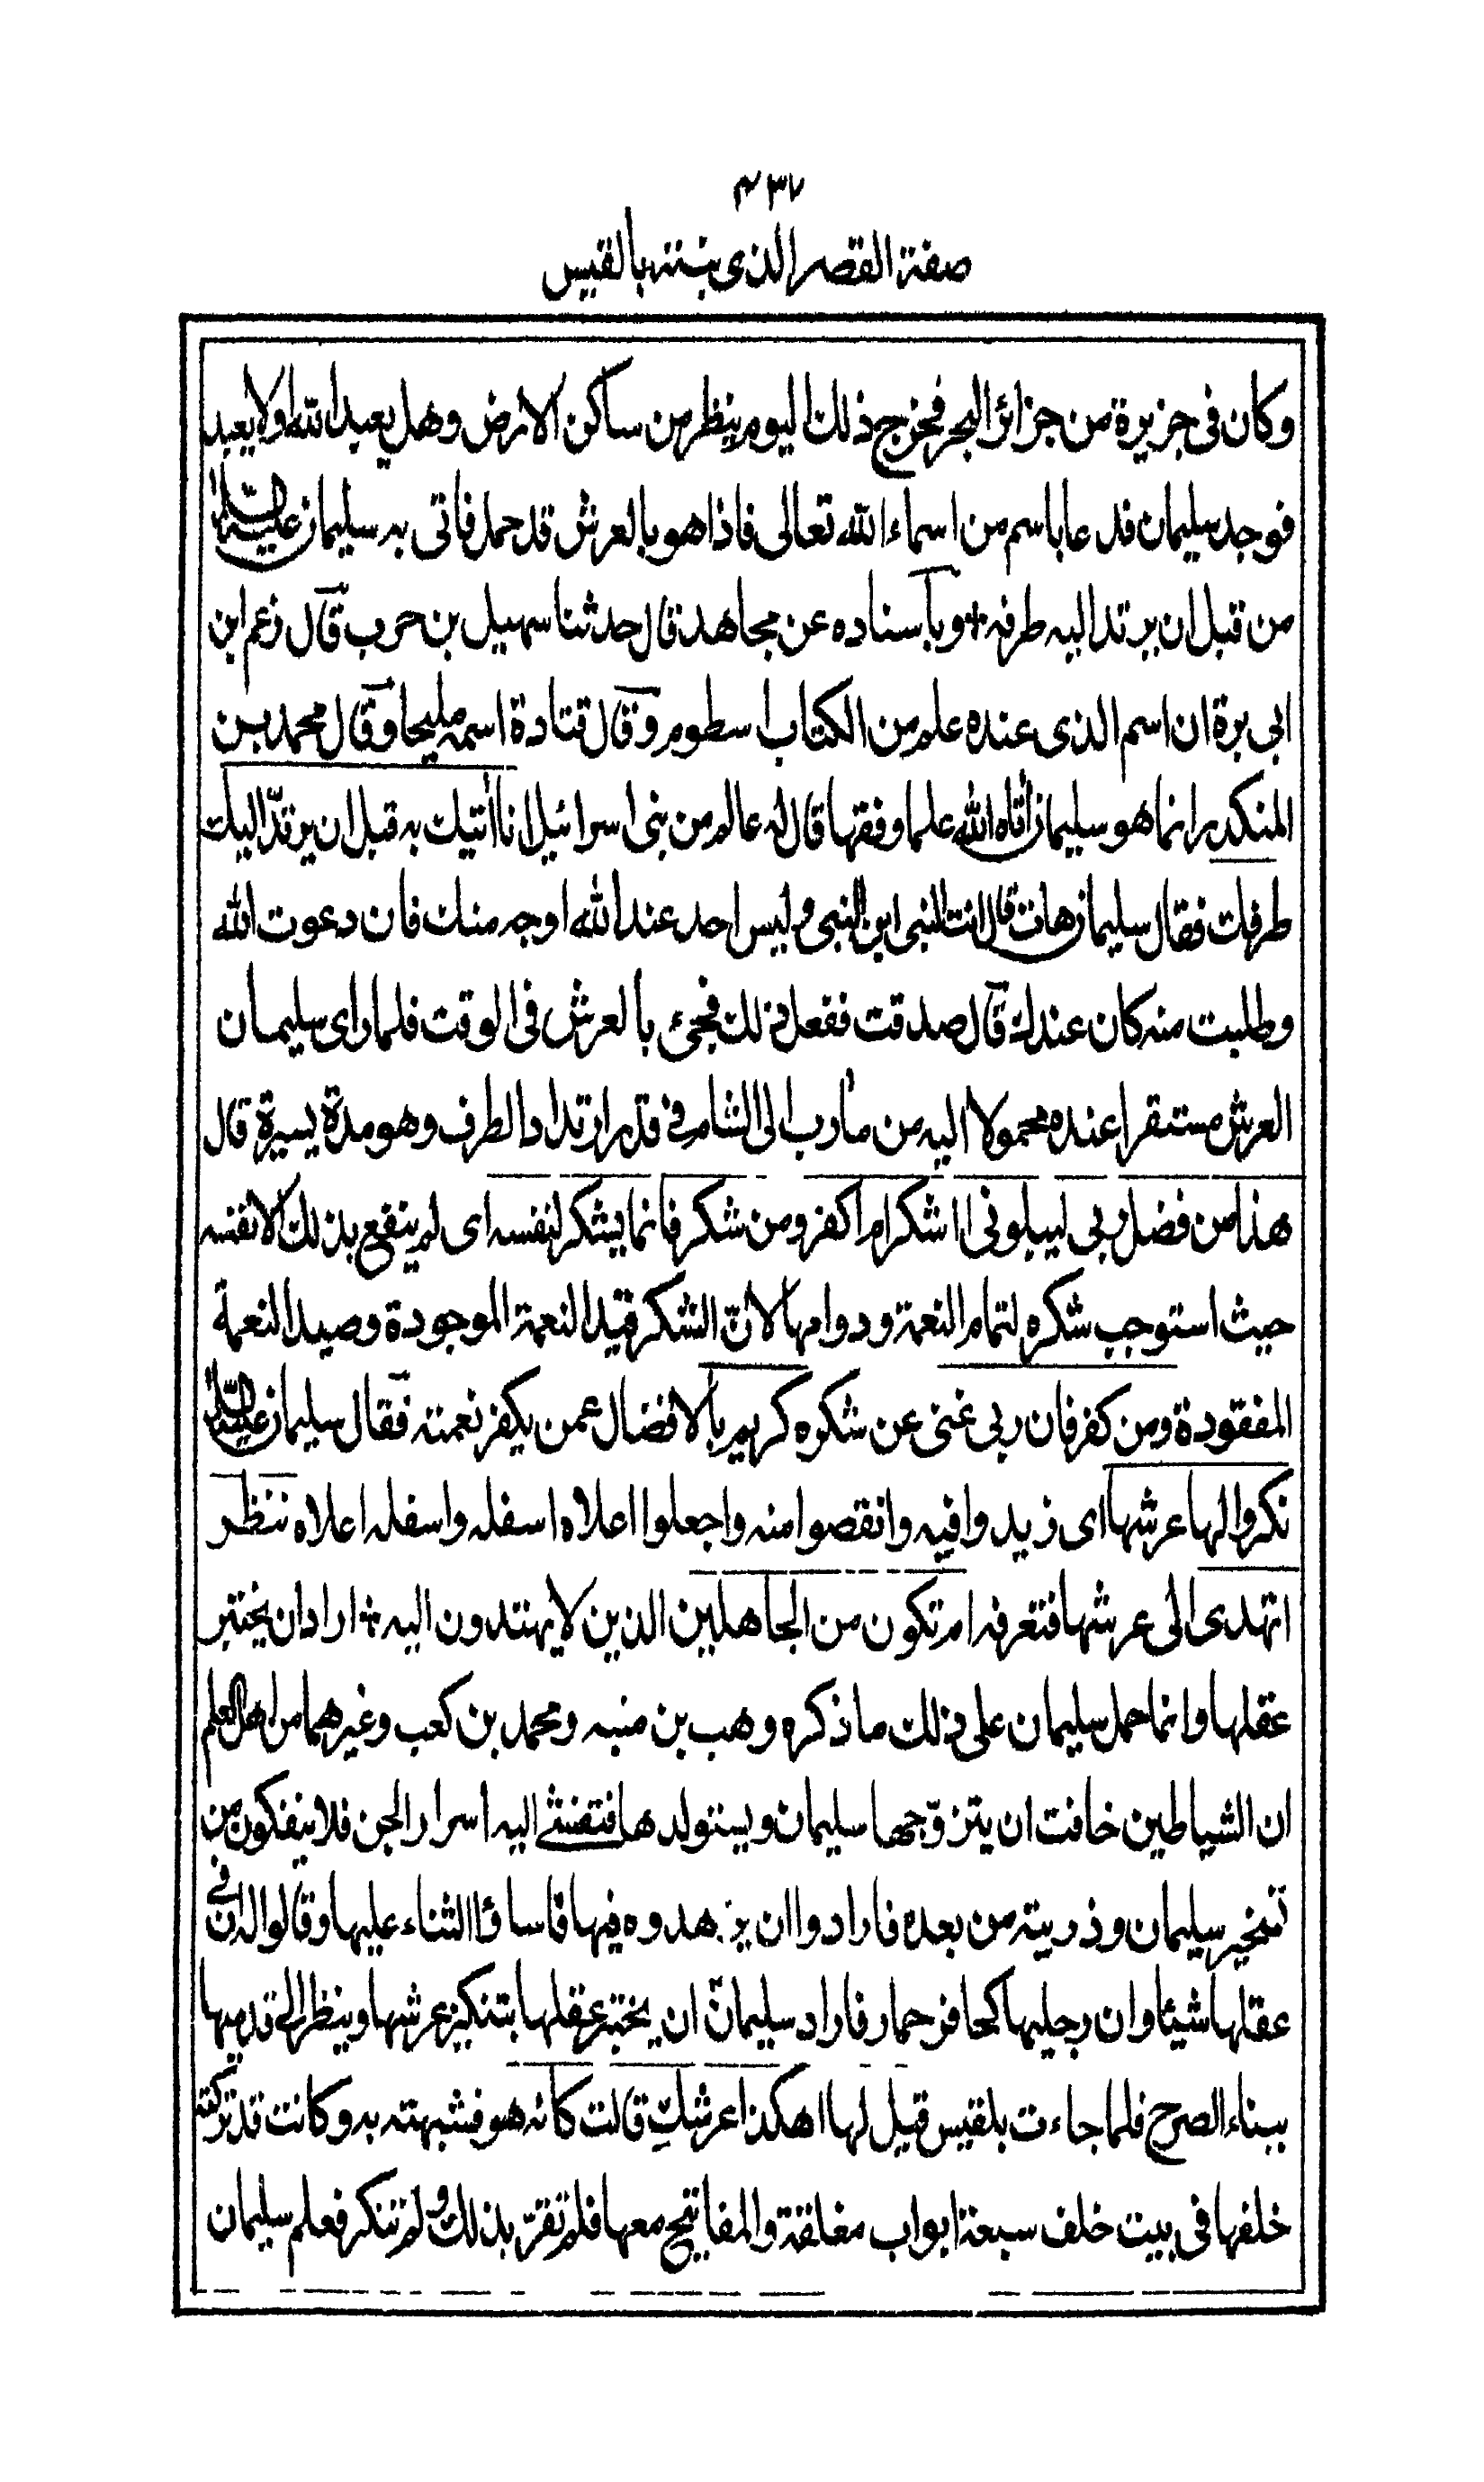 ٤٣٧
صفة القصر الذي بنته بالقيس
وكان فى جزيرة من جزائر البحر فخرج ذلك اليوم ينظر من ساكن الارض وهل يعبد الله اولا يعبد
فوجد سليمان فدعا باسم من اسماء الله تعالى فاذا هو بالعرش قد حمل فاتى به سليمان عليه السلام
من قبل ان يرتد اليه طرفه + وباسناده عن مجاهد قال حدثنا سهيل بن حرب قال زعم ابن
ابى برة ان اسم الذى عنده علم من الكتاب اسطوم وقال قتادة اسمه مليحا وقال محمد بن
المنكدر انما هو سليمان اتاه الله علما وفقها قال له عالم من بنى اسرائيل انا اتيك به قبل ان يرتدّ اليك
طرفك فقال سليمان هات قال انت النبى ابن النبى وليس احد عند الله اوجه منك فان دعوت الله
وطلبت منه كان عندك قال صدقت ففعل ذلك فجئ بالعرش فى الوقت فلما راى سليمان
العرش مستقرا عنده محمولا اليه من مأرب الى الشام فى قدر ارتداد الطرف وهو مدة يسيرة قال
هذا من فضل ربى ليبلونى ااشكر ام اكفر ومن شكر فانما يشكر لنفسه اى لم ينفع بذلك الا نفسه
حيث استوجب شكره لتمام النعمة ودوامها لانّ الشكر قيد النعمة الموجودة وصيد النعمة
المفقودة ومن كفر فان ربى غنى عن شكره كريم بالافضال عمن يكفر نعمته فقال سليمان عليه السلام
نكروا لها عرشها اى زيدوا فيه وانقصوا منه واجعلوا اعلاه اسفله واسفله اعلاه ننظر
اتهدى الى عرشها فتعرفه ام تكون من الجاهلين الذين لا يهتدون اليه + اراد ان يختبر
عقلها وانما حمل سليمان على ذلك ما ذكره وهب بن منبه ومحمد بن كعب وغيرهما من اهل العلم
ان الشياطين خافت ان يتزوّجها سليمان ويستولدها فتفشى اليه اسرار الجن فلا ينفكون من
تسخير سليمان وذريته من بعده فارادوا ان يزهدوه فيها فاساؤا الثناء عليها وقالوا له ان فى
عقلها شيئا وان رجليها كحافر حمار فاراد سليمان ان يختبر عقلها بتنكير عرشها وينظر الى قدميها
ببناء الصرح فلما جاءت بلقيس قيل لها اهكذا عرشكِ قالت كانه هو فشبهته به وكانت قد تركته
خلفها فى بيت خلف سبعة ابواب مغلقة والمفاتيح معها فلم تقرّ بذلك ولم تنكر فعلم سليمان